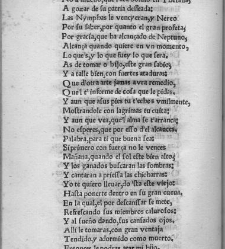 A gozar de su patria desseada:
Las Nymphas le venceran, y Nereo
Por su saber, por quanto el gran propheta;
Por gracia, que ha alcançado de Neptuno,
Alcança quando quiere en vn momento,
Lo que's, y lo que fue, y lo que sera.
As de tomar o hijo, este gran sabio,
Y a talle bien, con fuertes ataduras:
Que d'otra arte jamas avra remedio,
Quel' informe de cosa que le pidas.
Y aun que assi
Mostrandole con lagrimas tu cuita;
Y aun que ver, que'l alma se t'arranca;
No esperes, que por esso d'el alcances
Palabra, para ti que buena sea:
Si primero con fuerça no le vences
Mañana, quando el sol este bien alto;
Y los ganados buscaran las sombras;
Y cantaran a priessa las chicharras:
Yo te quiero lleuar, do 'sta este viejo
Hasta ponerte dentro en su gran coma,
En la qual, el por descansar se mete,
Refrescando sus miembros calurosos;
Y al sueño dando, sus cansados ojos,
Alli le tomaras, con gran ventaja
Tendido, y adormido como muerto,